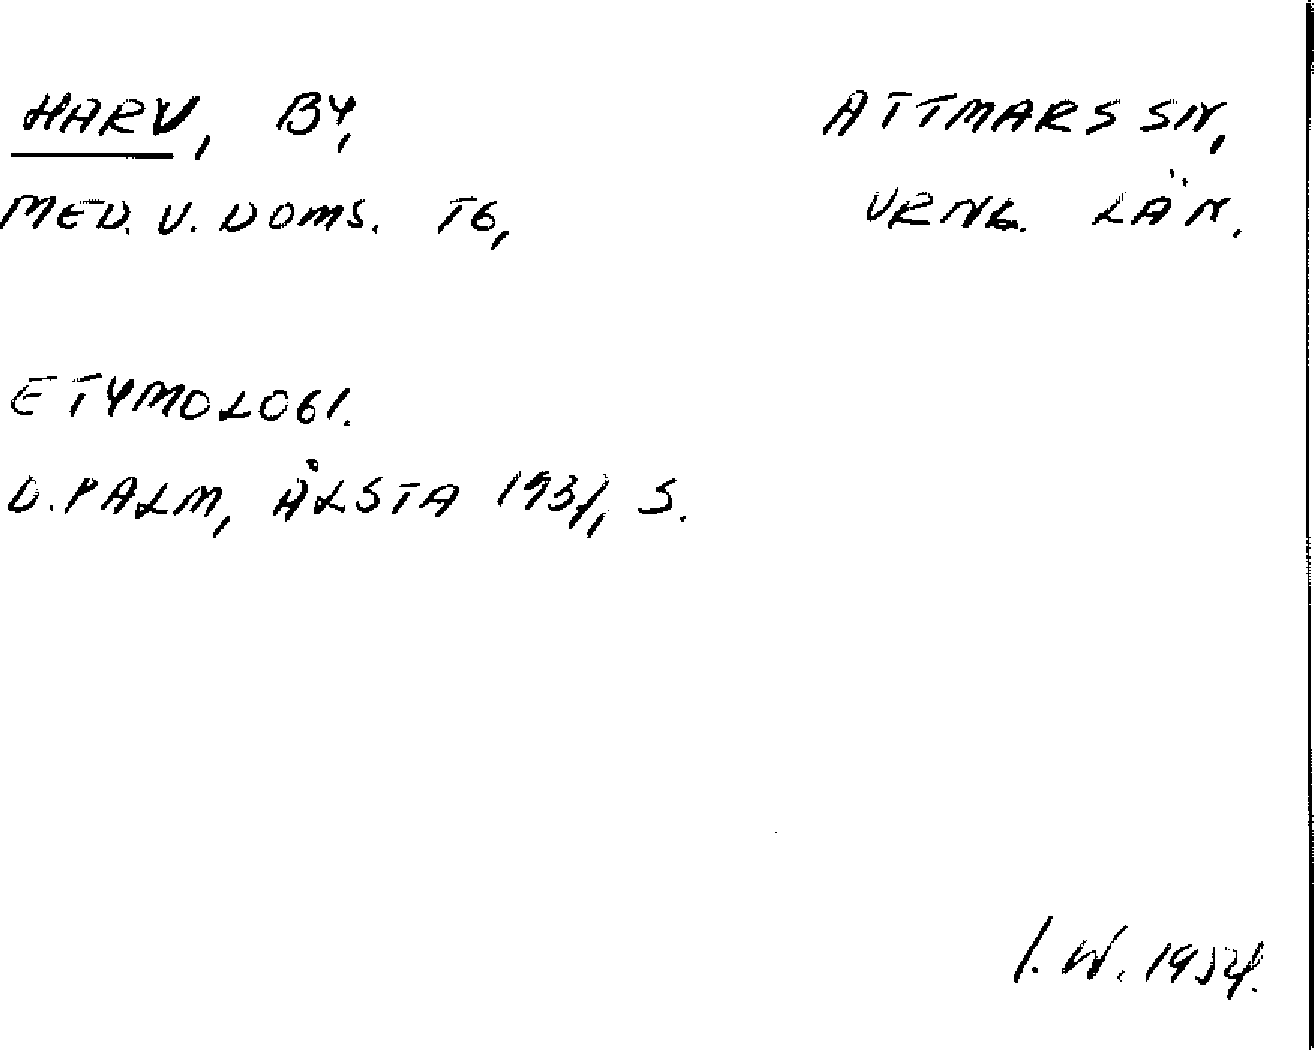 HARV, BY, ATTMARS SN,
MED. V. DOMS. TG, VRNL. LÄN.
ETYMOLOGI.
D. PALM, ÅLSTA 1931, S.
I. W. 1954.